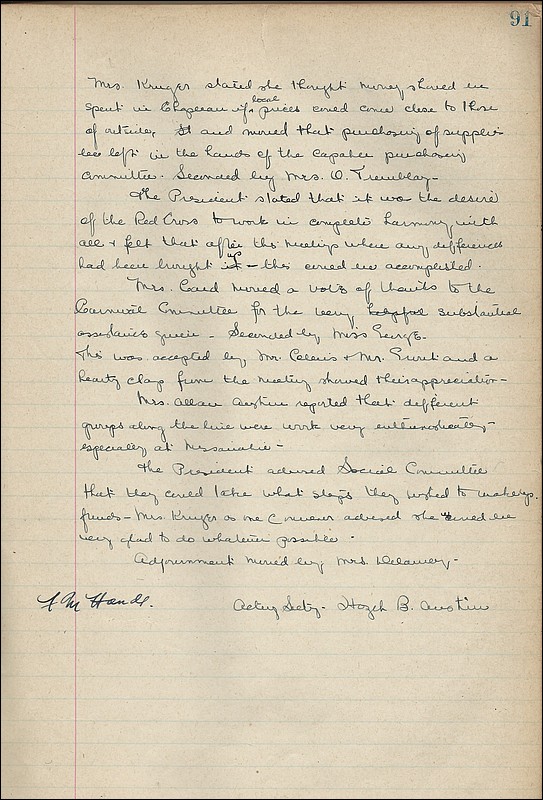 91
Mrs. Kruger stated she thought money should be
spent in Chapleau if local prices could come close to those
of outside, and moved that purchasing of supplies
be left in the hands of the capable purchasing
committee. Seconded by Mrs. O. Tremblay-
The President stated that it was the desire
of the Red Cross to work in complete harmony with
all & felt that after this meeting where any differences
had been brought up - this could be accomplished.
Mrs. Card moved a vote of thanks to the
Carnival Committee for the very helpful substantial
assistance given - Seconded by Miss George-
This was accepted by Mr. & Mr. and a
hearty clap from the meeting showed their appreciation-
Mrs. Allan Austin reported that different
groups along the line were work very enthusiastically-
especially at Missanabie-
The President advised Social Committee
that they could take what steps they wished to make up
funds- Mrs. Kruger as one Convener advised she would be
very glad to do whatever possible.
Adjournment moved by Mrs. Delaney-
Acting Secty- B. Austin